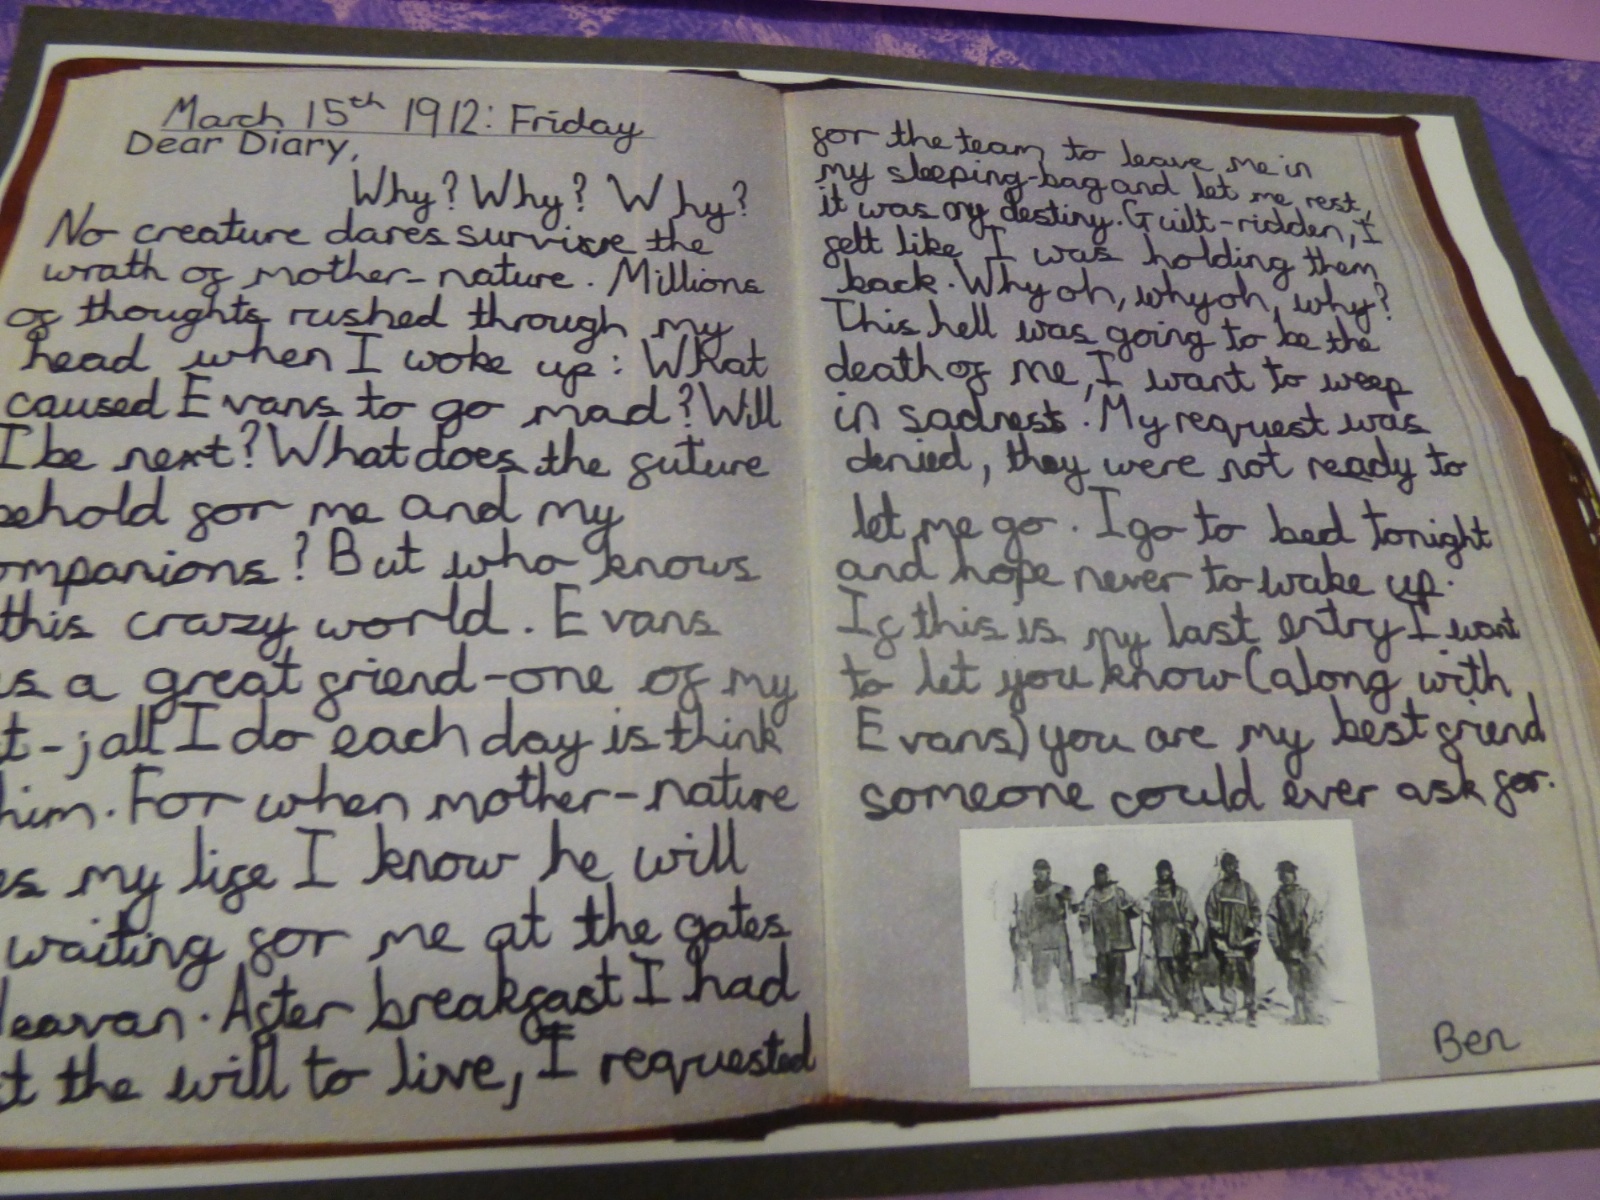 March 15th 1912: Friday
Dear Diary,
Why? Why? Why?
No creature dares survive the
wrath of mother-nature. Millions
of thoughts rushed through my
head when I woke up: What
caused Evans to go mad? Will
I be next? What does the future
behold for me and my
ompanions? But who knows
this crazy world. Evans
s a great friend-one of my
t-jall I do each day is think
him. For when mother-nature
es my life I know he will
waiting for me at the gates
Heavan. After breakfast I had
t the will to live, I requested
for the team to leave me in
my sleeping-bag and let me rest,
it was my destiny. Guilt-ridden, I
felt like I was holding them
back. Why oh, why oh, why?
This hell was going to be the
death of me, I want to weep
in sadness. My request was
denied, they were not ready to
let me go. I go to bed tonight
and hope never to wake up.
If this is my last entry I want
to let you know (along with
Evans) you are my best friend
someone could ever ask for.
Ben